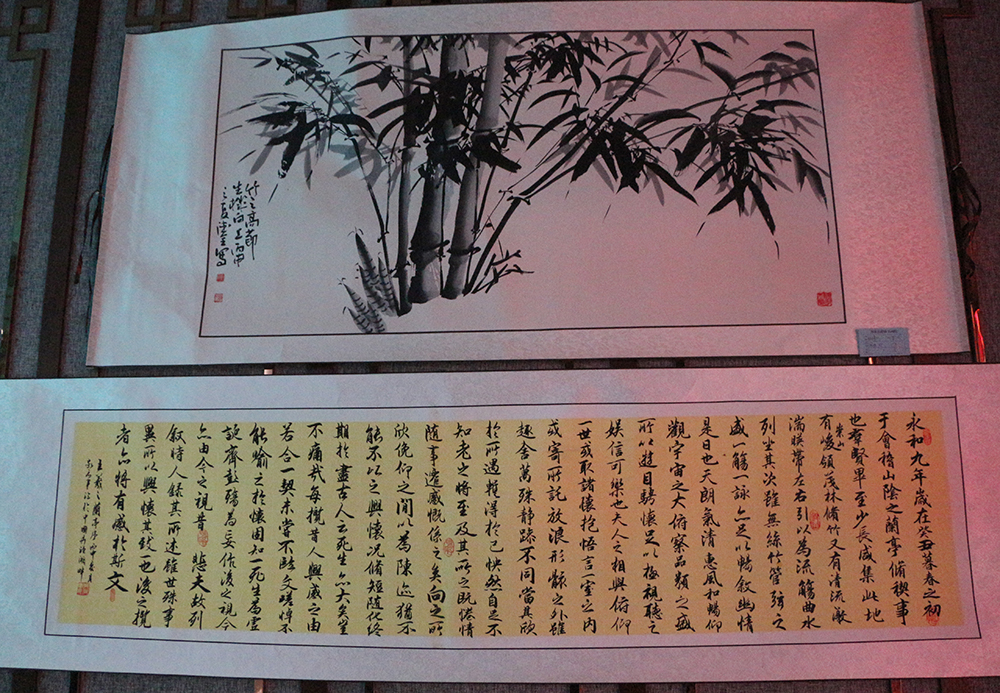 竹之高節
生機向上丙申
之夏
寫
永和九年歲在癸丑暮春之初
于會稽山陰之蘭亭脩稧事
也羣賢畢至少長咸集此地
有崇山峻領茂林脩竹又有清流激
湍暎帶左右引以為流觴曲水
列坐其次雖無絲竹管弦之
盛一觴一詠亦足以暢敘幽情
是日也天朗氣清惠風和暢仰
觀宇宙之大俯察品類之盛
所以遊目騁懷足以極視聽之
娛信可樂也夫人之相與俯仰
一世或取諸懷抱悟言一室之內
或寄所託放浪形骸之外雖
趣舍萬殊靜躁不同當其欣
於所遇蹔得於己怏然自足不
知老之將至及其所之既惓情
隨事遷感慨係之矣向之所
欣俛仰之閒以為陳迹猶不
能不以之興懷況脩短隨化終
期於盡古人云死生亦大矣豈
不痛哉每攬昔人興感之由
若合一契未嘗不臨文嗟悼不
能喻之於懷固知一死生為虛
誕齊彭殤為妄作後之視今
亦由今之視昔 悲夫故列
敘時人錄其所述雖世殊事
異所以興懷其致一也後之攬
者亦將有感於斯文
王羲之蘭亭序